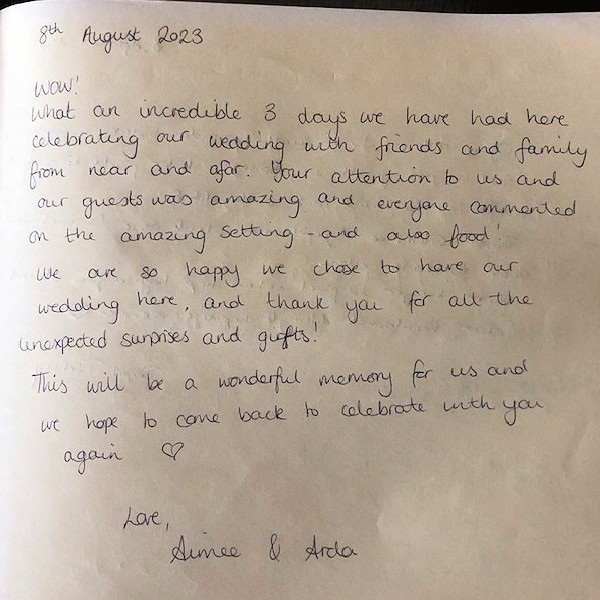 8th August 2023
WOW!
What an incredible 3 days we have had here
celebrating our wedding with friends and family
from near and afar. Your attention to us and
our guests was amazing and everyone commented
on the amazing setting - and also food!
We are so happy we chose to have our
wedding here, and thank you for all the
unexpected surprises and gifts!
This will be a wonderful memory for us and
we hope to come back to celebrate with you
again ♡
Love,
Aimee & Arda